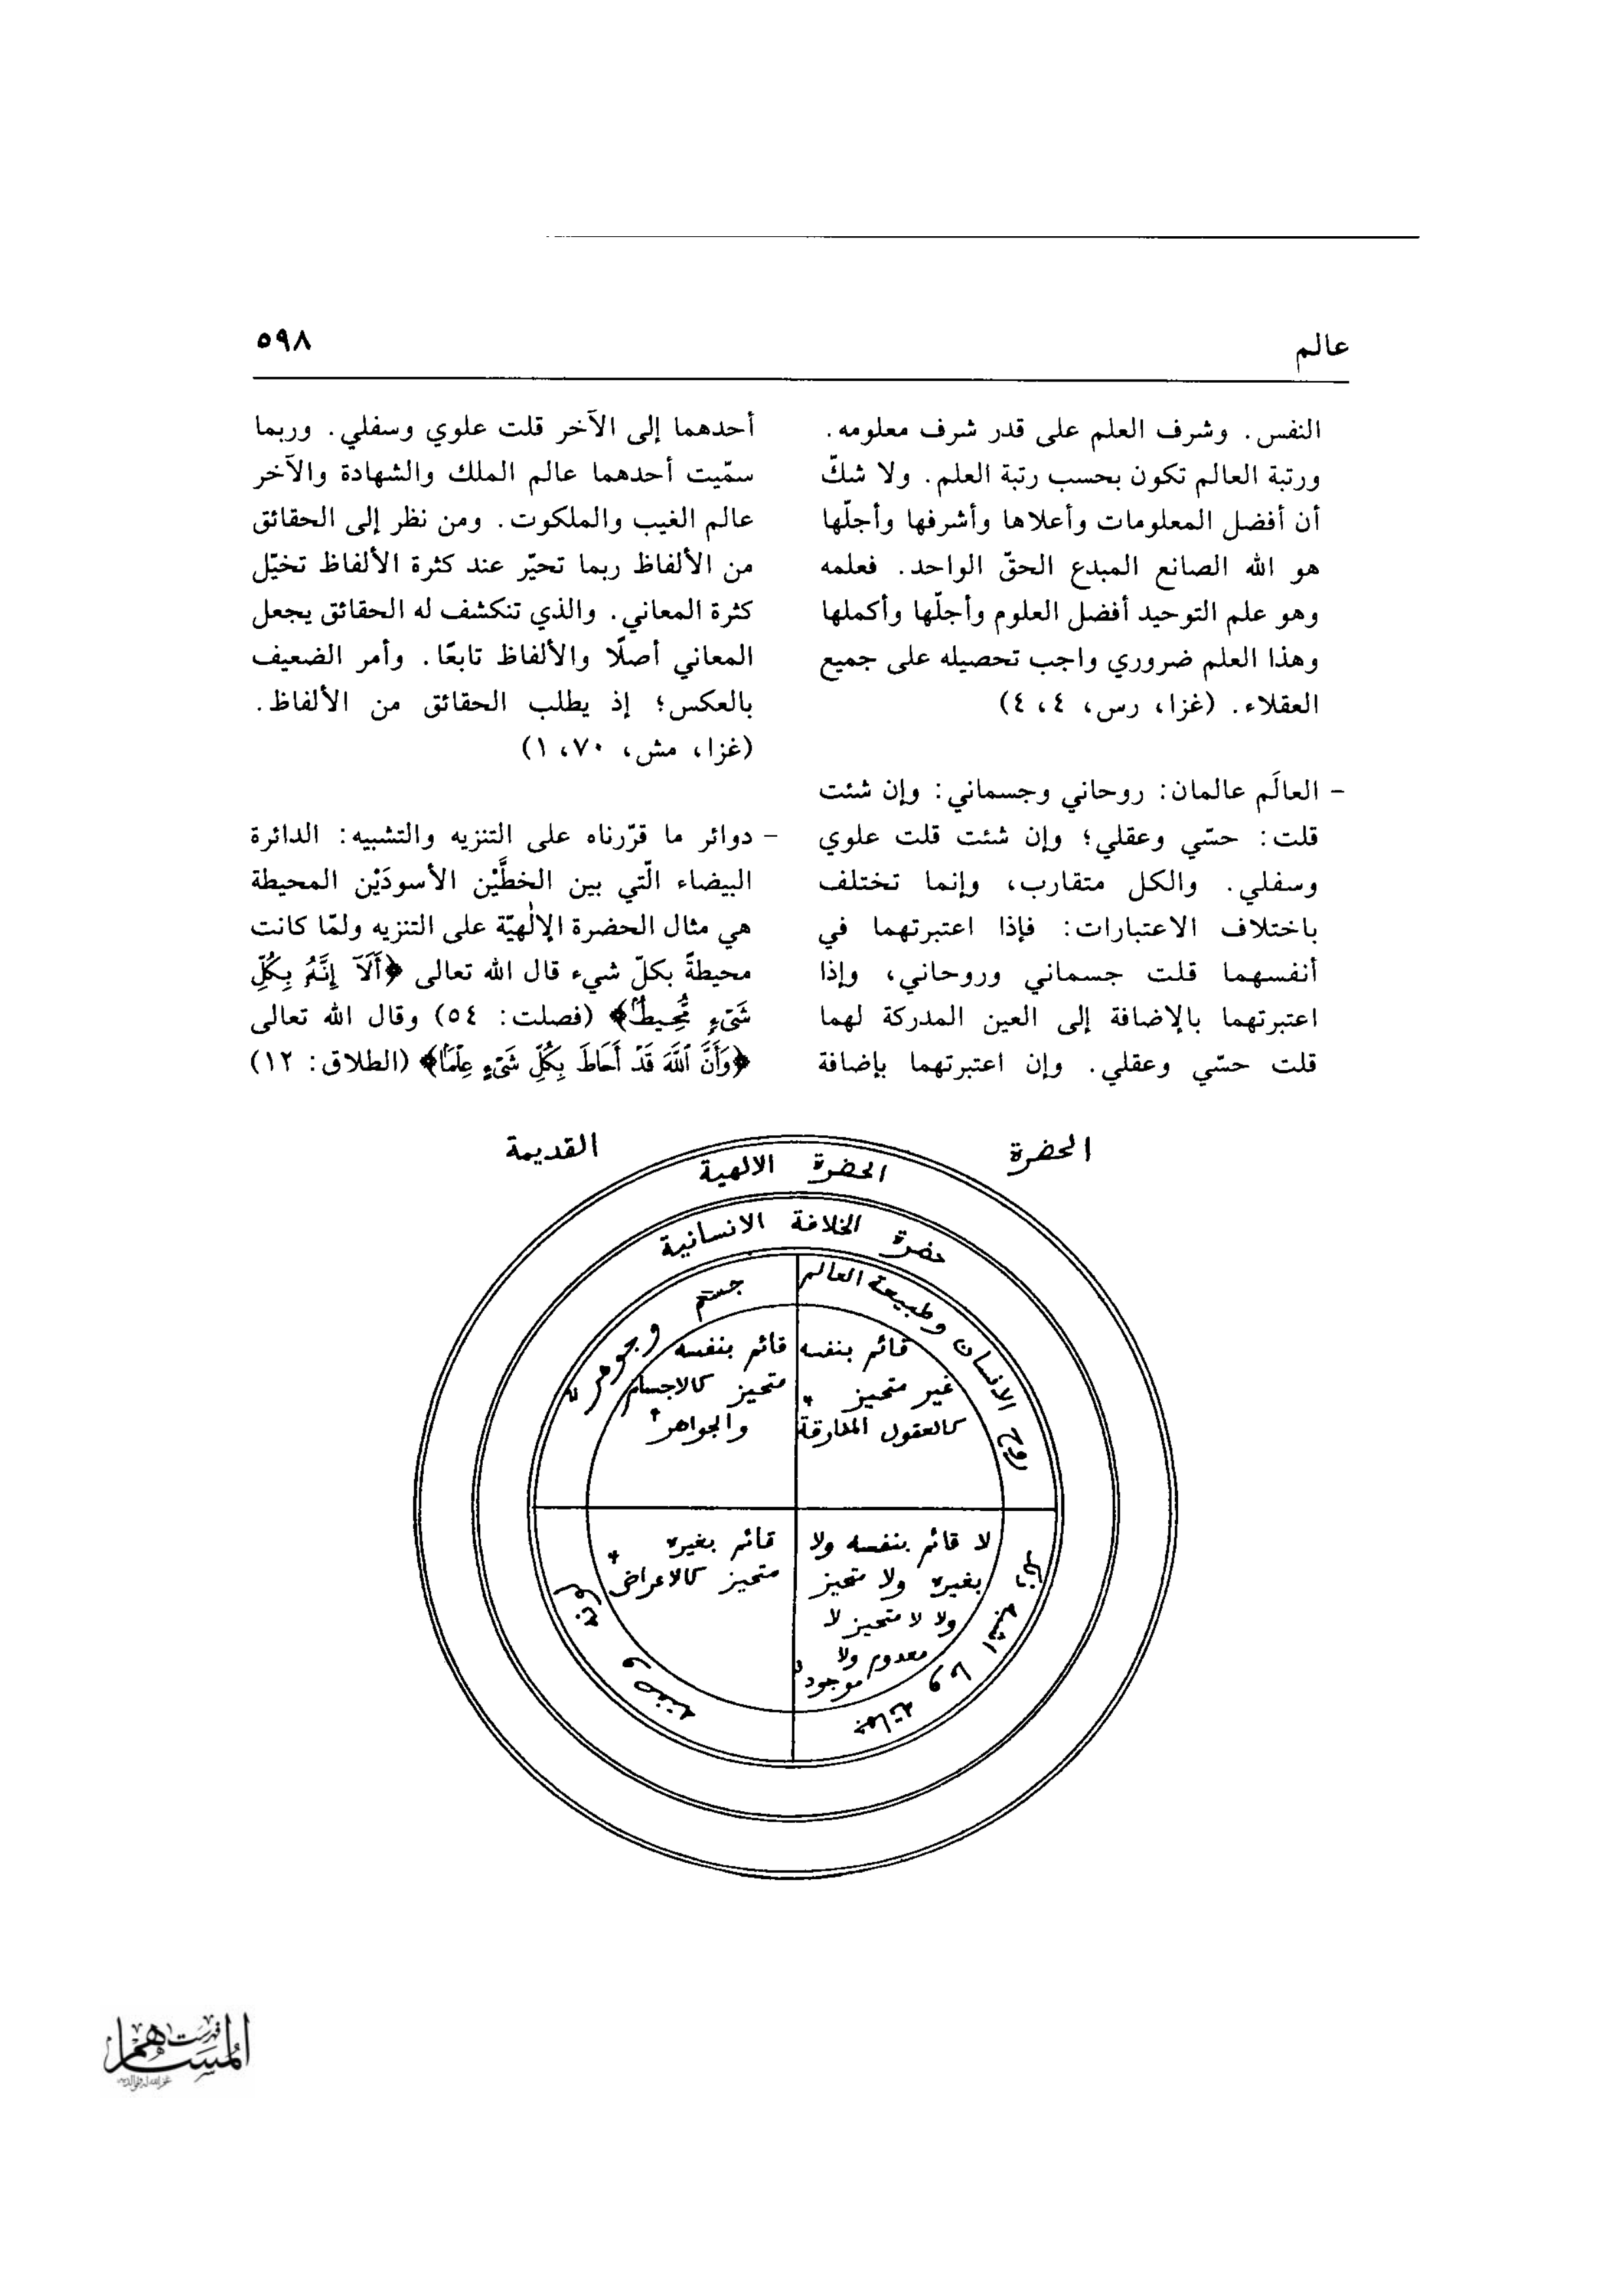 عالم
٥٩٨
النفس. وشرف العلم على قدر شرف معلومه.
ورتبة العالم تكون بحسب رتبة العلم. ولا شكّ
أن أفضل المعلومات وأعلاها وأشرفها وأجلّها
هو الله الصانع المبدع الحقّ الواحد. فعلمه
وهو علم التوحيد أفضل العلوم وأجلّها وأكملها
وهذا العلم ضروري واجب تحصيله على جميع
العقلاء. (غزا، رس، ٤، ٤)
- العالَم عالمان: روحاني وجسماني: وإن شئت
قلت: حسّي وعقلي؛ وإن شئت قلت علوي
وسفلي. والكل متقارب، وإنما تختلف
باختلاف الاعتبارات: فإذا اعتبرتهما في
أنفسهما قلت جسماني وروحاني، وإذا
اعتبرتهما بالإضافة إلى العين المدركة لهما
قلت حسّي وعقلي. وإن اعتبرتهما بإضافة
أحدهما إلى الآخر قلت علوي وسفلي. وربما
سمّيت أحدهما عالم الملك والشهادة والآخر
عالم الغيب والملكوت. ومن نظر إلى الحقائق
من الألفاظ ربما تحيّر عند كثرة الألفاظ تخيّل
كثرة المعاني. والذي تنكشف له الحقائق يجعل
المعاني أصلًا والألفاظ تابعًا. وأمر الضعيف
بالعكس؛ إذ يطلب الحقائق من الألفاظ.
(غزا، مش، ٧٠، ١)
- دوائر ما قرّرناه على التنزيه والتشبيه: الدائرة
البيضاء الّتي بين الخطَّيْن الأسودَيْن المحيطة
هي مثال الحضرة الإلٰهيّة على التنزيه ولمّا كانت
محيطةً بكلّ شيء قال الله تعالى ﴿أَلَآ إِنَّهُۥ بِكُلِّ
شَىْءٍ مُّحِيطٌۢ﴾ (فصلت: ٥٤) وقال الله تعالى
﴿وَأَنَّ ٱللَّهَ قَدْ أَحَاطَ بِكُلِّ شَىْءٍ عِلْمًۢا﴾ (الطلاق: ١٢)
الحضرة القديمة
الحضرة الالهية
حضرة الخلافة الانسانية
روح الانسان وطبيعة العالم
جسم وجوهر
قائم بنفسه
غير متحيز
كالعقول المفارقة
قائم بنفسه
متحيز كالاجسام
والجواهر
لا قائم بنفسه ولا
بغيره ولا متحيز
ولا لا متحيز لا
معدوم ولا
موجود
قائم بغيره
متحيز كالاعراض
وما اشبه
فهرست
المساهم